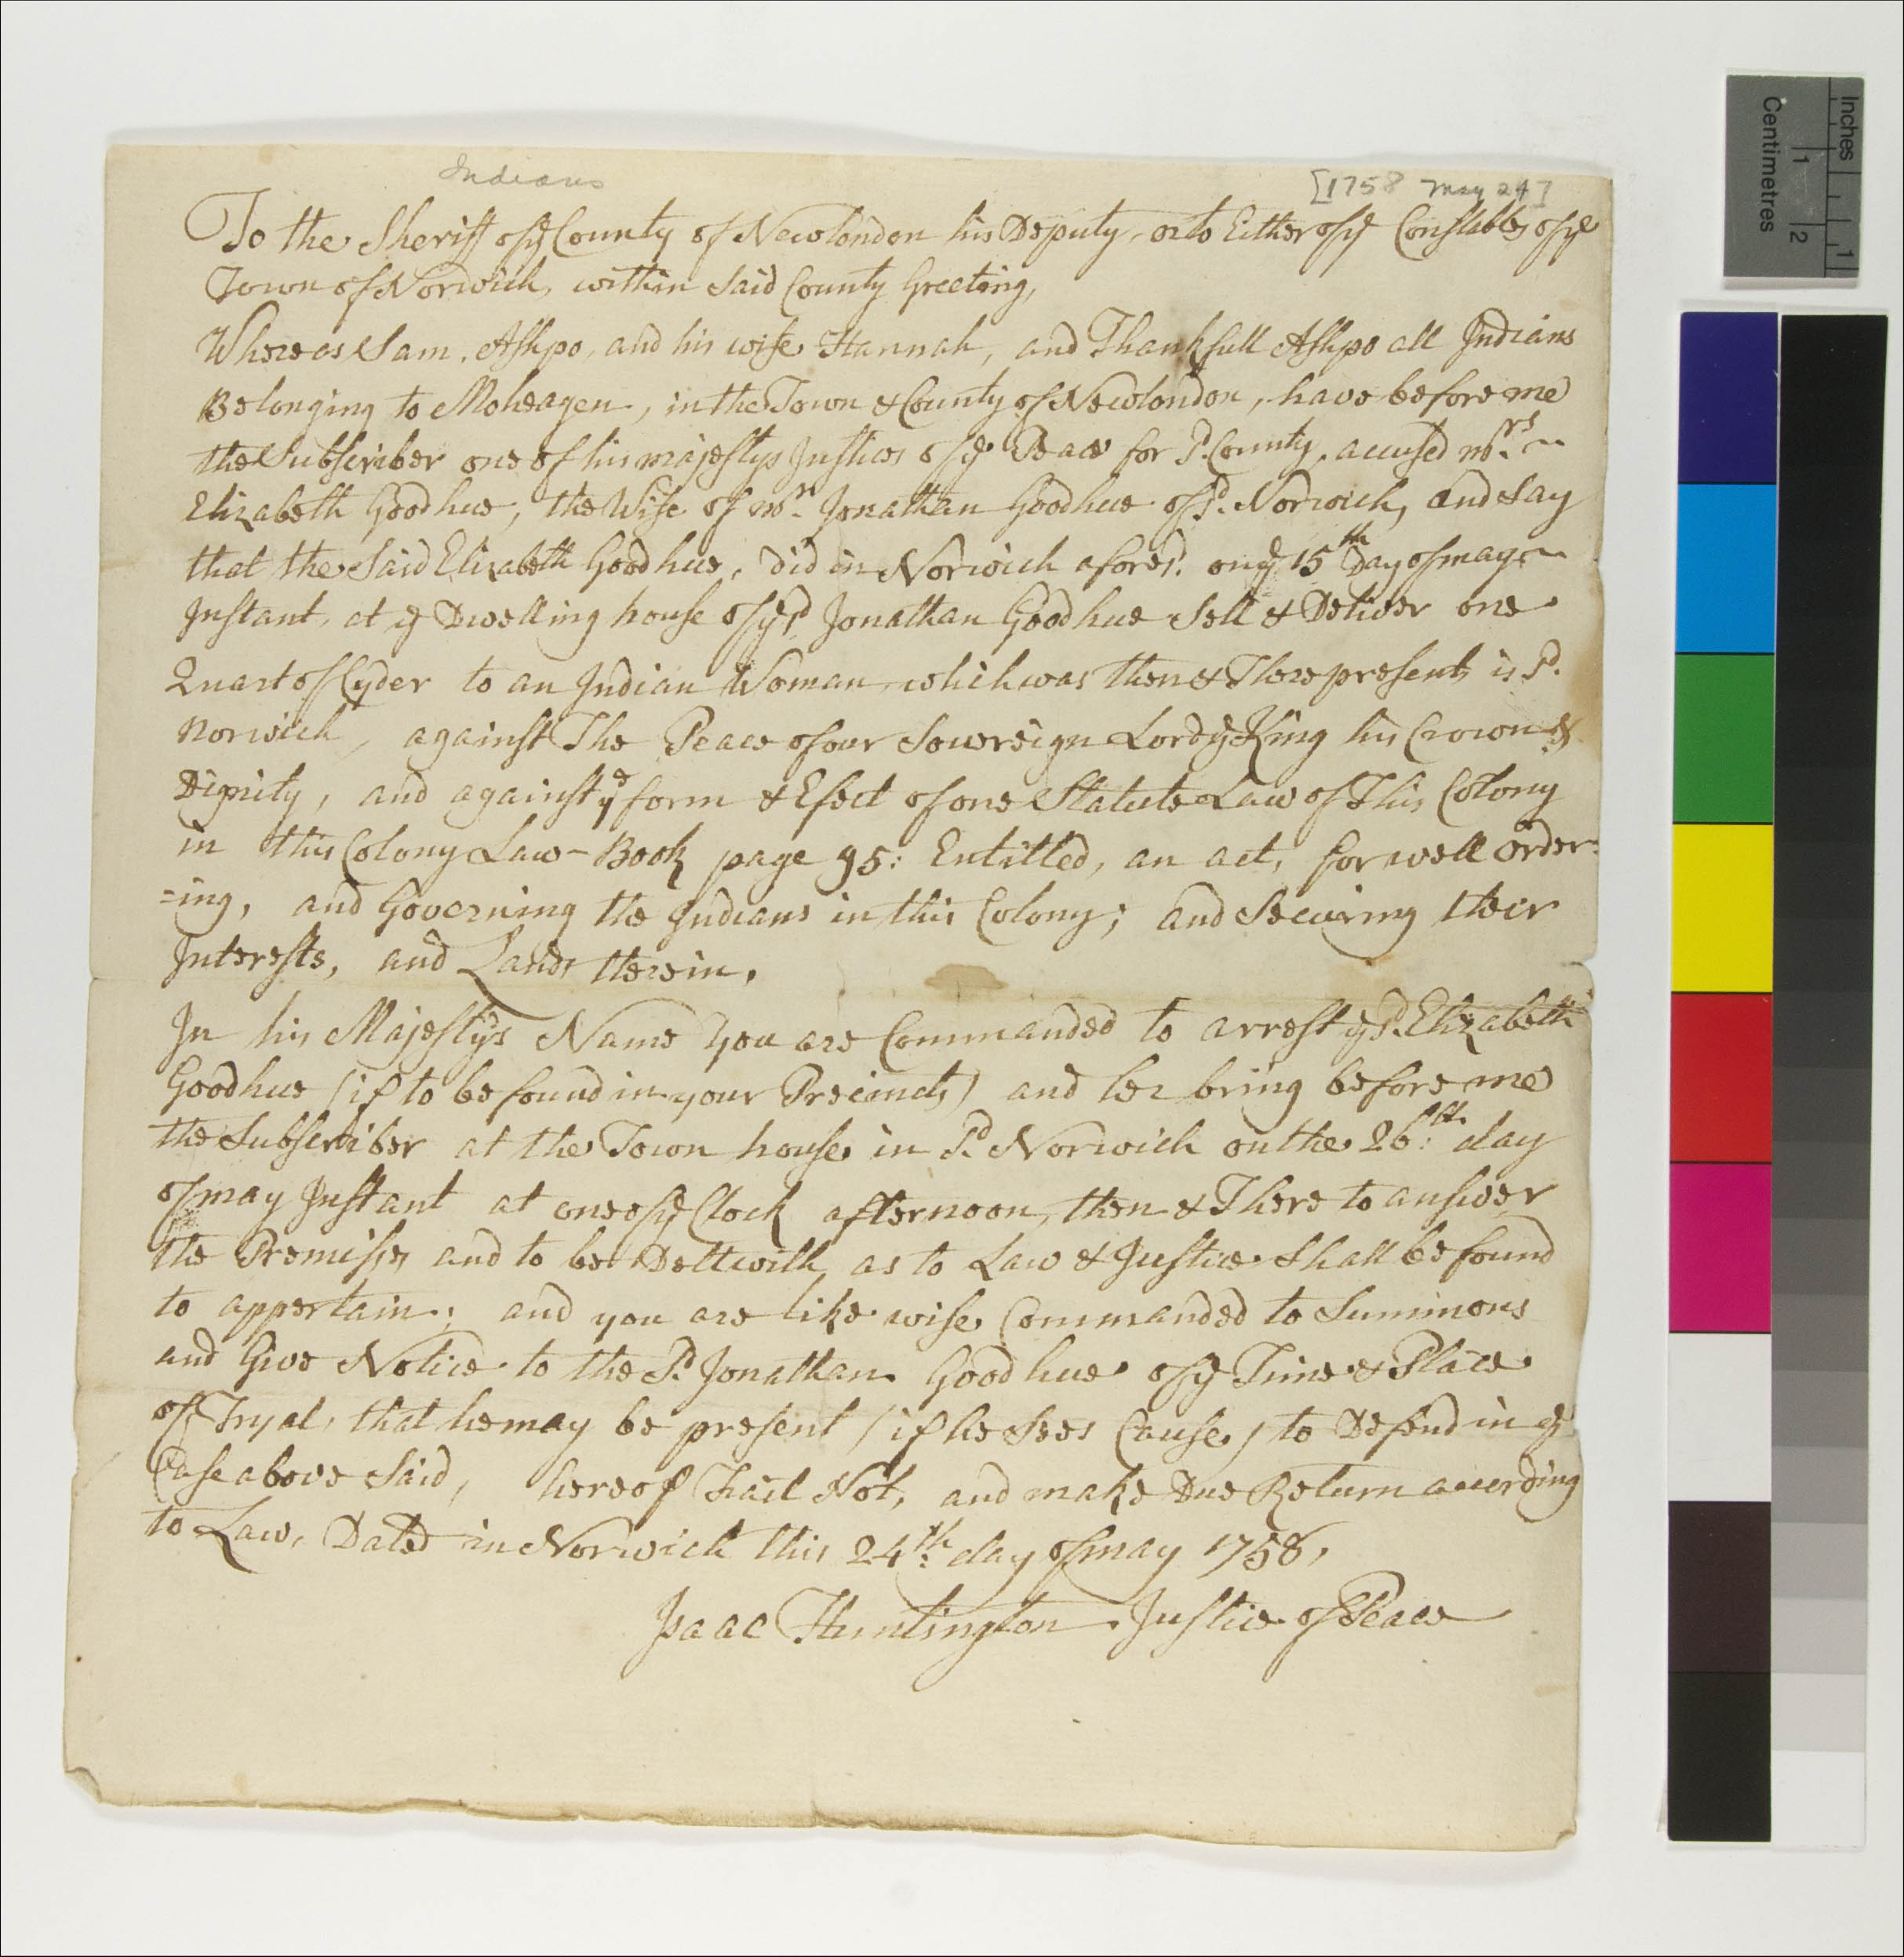 Indians
[1758 May 24]
To the Sheriff of ye County of Newlondon his Deputy, or to Either of ye Constables of ye
Town of Norwich, within Said County Greeting,
Whereas Sam. Ashpo, and his wife Hannah, and Thankfull Ashpo all Indians
Belonging to Moheagen, in the Town & County of Newlondon, have before me
the Subscriber one of his majestys Justices of ye Peace for Sd. County, accused mrs.
Elizabeth Goodhue, the Wife of mr. Jonathan Goodhue of Sd. Norwich, and Say
that the Said Elizabeth Goodhue, did in Norwich aforesd. on ye 15th Day of may
Instant, at ye Dwelling house of ye Sd Jonathan Goodhue Sell & Deliver one
Quart of Cyder to an Indian Woman, which was then & There present, in Sd.
Norwich, against The Peace of our Sovereign Lord ye King his Crown &
Dignity, and against ye form & Efect of one Statute Law of This Colony
in this Colony Law-Book page 95: Entitled, an act, for well order=
=ing, and Governing the Indians in this Colony; and Securing their
Interests, and Lands therein.
In his Majesty's Name You are Commanded to arrest ye Sd. Elizabeth
Goodhue (if to be found in your Precincts) and her bring before me
the Subscriber at the Town house in Sd. Norwich on the 26:th day
of may Instant at one of ye Clock afternoon, then & There to answer
the Premises, and to be Deltwith as to Law & Justice Shall be found
to appertain; and you are likewise Commanded to Summons
and Give Notice to the Sd. Jonathan Goodhue of ye Time & Place
of Tryal, that he may be present (if he Sees Cause) to Defend in ye
Case above Said, hereof Fail Not, and make Due Return according
to Law, Dated in Norwich this 24:th day of may 1758,
Isaac Huntington Justice of Peace
Inches
1
Centimetres
1 2